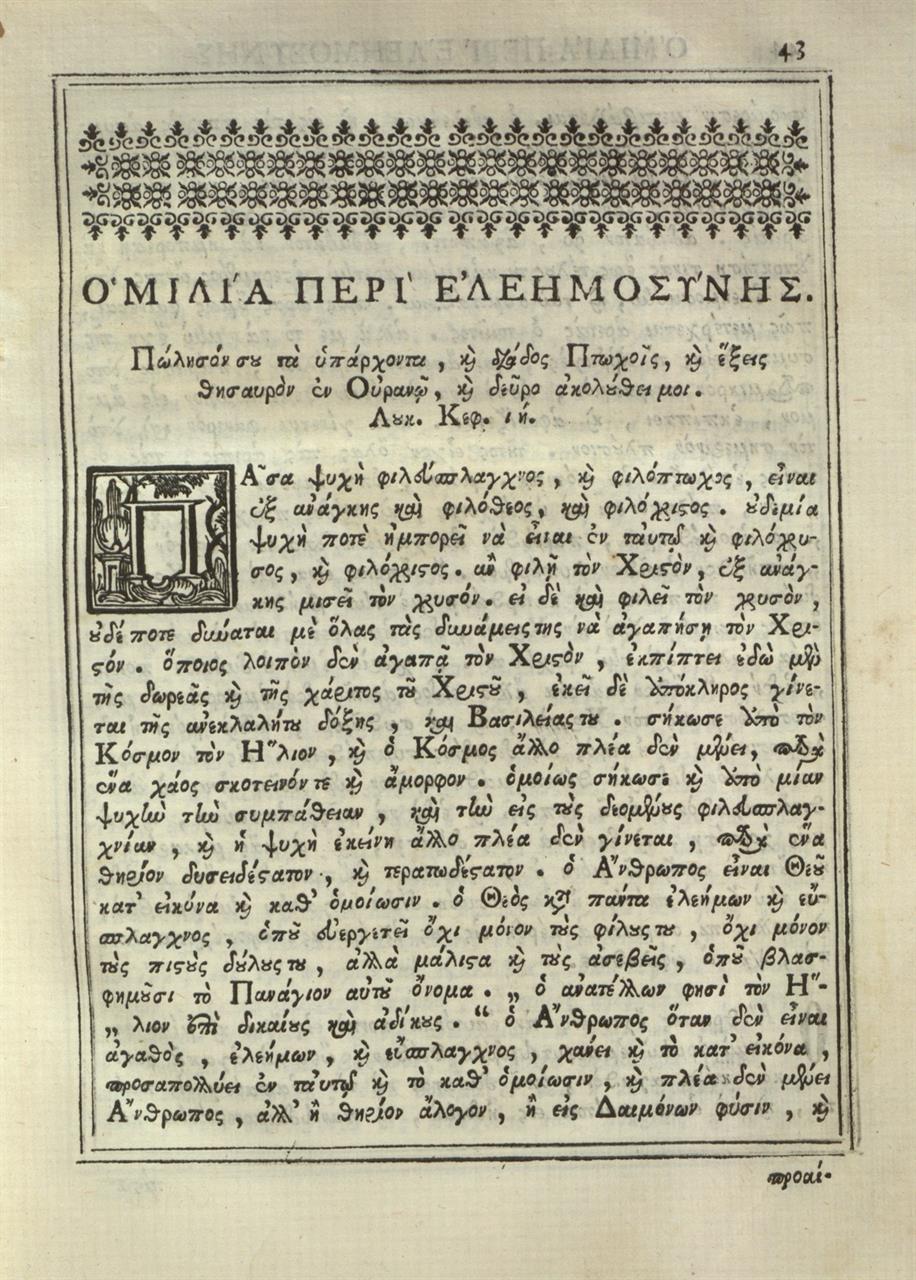 43
ὉΜΙΛΊΑ ΠΕΡῚ ἘΛΕΗΜΟΣΎΝΗΣ.
Πώλησόν σου τὰ ὑπάρχοντα, καὶ διάδος Πτωχοῖς, καὶ ἕξεις
θησαυρὸν ἐν Οὐρανῷ, καὶ δεῦρο ἀκολούθει μοι.
Λουκ. Κεφ. ιή.
ΠΑ͂σα ψυχὴ φιλεύσπλαγχνος, καὶ φιλόπτωχος, εἶναι
ἐξ ἀνάγκης καὶ φιλόθεος, καὶ φιλόχριστος. οὐδεμία
ψυχὴ ποτὲ ἠμπορεῖ νὰ εἶναι ἐν ταὐτῷ καὶ φιλόχρυ-
σος, καὶ φιλόχριστος. ἂν φιλῇ τὸν Χριστὸν, ἐξ ἀνάγ-
κης μισεῖ τὸν χρυσόν. εἰ δὲ καὶ φιλεῖ τὸν χρυσὸν,
οὐδέ ποτε δύναται μὲ ὅλας τὰς δυνάμεις της νὰ ἀγαπήσῃ τὸν Χρι-
στόν. ὅποιος λοιπὸν δὲν ἀγαπᾷ τὸν Χριστὸν, ἐκπίπτει ἐδὼ μὲν
τῆς δωρεᾶς καὶ τῆς χάριτος τοῦ Χριστοῦ, ἐκεῖ δὲ ἀπόκληρος γίνε-
ται τῆς ἀνεκλαλήτου δόξης, καὶ Βασιλείας του. σήκωσε ἀπὸ τὸν
Κόσμον τὸν Ἥλιον, καὶ ὁ Κόσμος ἄλλο πλέα δὲν μένει, παρὰ
ἕνα χάος σκοτεινόν τε καὶ ἄμορφον. ὁμοίως σήκωσε καὶ ἀπὸ μίαν
ψυχὴν τὴν συμπάθειαν, καὶ τὴν εἰς τοὺς δεομένους φιλευσπλαγ-
χνίαν, καὶ ἡ ψυχὴ ἐκείνη ἄλλο πλέα δὲν γίνεται, παρὰ ἕνα
θηρίον δυσειδέστατον, καὶ τερατωδέστατον. ὁ Ἄνθρωπος εἶναι Θεοῦ
κατ' εἰκόνα καὶ καθ' ὁμοίωσιν. ὁ Θεὸς κατὰ πάντα ἐλεήμων καὶ εὔ-
σπλαγχνος, ὁποῦ εὐεργετεῖ ὄχι μόνον τοὺς φίλους του, ὄχι μόνον
τοὺς πιστοὺς δούλους του, ἀλλὰ μάλιστα καὶ τοὺς ἀσεβεῖς, ὁποῦ βλασ-
φημοῦσι τὸ Πανάγιον αὐτοῦ ὄνομα. „ ὁ ἀνατέλλων φησὶ τὸν Ἥ-
„ λιον ἐπὶ δικαίους καὶ ἀδίκους. “ ὁ Ἄνθρωπος ὅταν δὲν εἶναι
ἀγαθὸς, ἐλεήμων, καὶ εὔσπλαγχνος, χάνει καὶ τὸ κατ' εἰκόνα,
προσαπολλύει ἐν ταὐτῷ καὶ τὸ καθ' ὁμοίωσιν, καὶ πλέα δὲν μένει
Ἄνθρωπος, ἀλλ' ἢ θηρίον ἄλογον, ἢ εἰς Δαιμόνων φύσιν, καὶ
προαί-